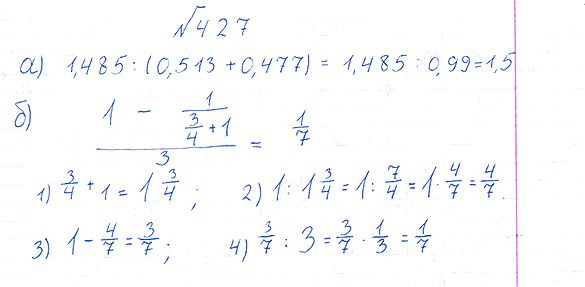 √427
а) 1,485 : (0,513 + 0,477) = 1,485 : 0,99 = 1,5
б) (1 - 1/(3/4 + 1))/3 = 1/7
1) 3/4 + 1 = 1 3/4; 2) 1 : 1 3/4 = 1 : 7/4 = 1 · 4/7 = 4/7.
3) 1 - 4/7 = 3/7; 4) 3/7 : 3 = 3/7 · 1/3 = 1/7